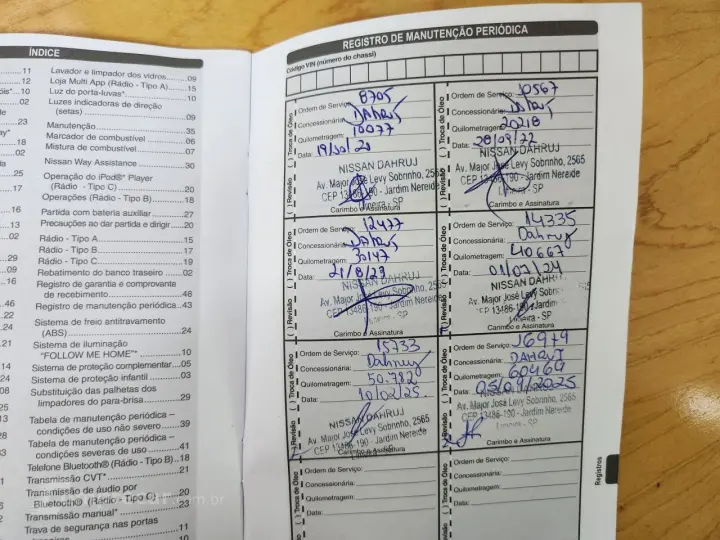 ÍNDICE
11
12
óis*...10
02
23
18
02
25
17
16
13
02
29
09
46
22
24
21
14
Lavador e limpador dos vidros......09
Loja Multi App (Rádio - Tipo A)......15
Luz do porta-luvas*......10
Luzes indicadoras de direção
(setas)......09
Manutenção......35
Marcador de combustível......06
Mistura de combustível......07
Nissan Way Assistance......30
Operação do iPod® Player
(Rádio - Tipo C)......20
Operações (Rádio - Tipo B)......18
Partida com bateria auxiliar......27
Precauções ao dar partida e dirigir...20
Rádio - Tipo A......15
Rádio - Tipo B......17
Rádio - Tipo C......19
Rebatimento do banco traseiro......02
Registro de garantia e comprovante
de recebimento......46
Registro de manutenção periódica...43
Sistema de freio antitravamento
(ABS)......24
Sistema de iluminação
"FOLLOW ME HOME"*......10
Sistema de proteção complementar...05
Sistema de proteção infantil......03
Substituição das palhetas dos
limpadores do para-brisa......29
Tabela de manutenção periódica –
condições de uso não severo......39
Tabela de manutenção periódica –
condições severas de uso......41
Telefone Bluetooth® (Rádio - Tipo B)...18
Transmissão CVT*......21
Transmissão de áudio por
Bluetooth® (Rádio - Tipo C)......20
Transmissão manual*......23
Trava de segurança nas portas
11
REGISTRO DE MANUTENÇÃO PERIÓDICA
Código VIN (número do chassi)
( ) Revisão ( ) Troca de Óleo
Ordem de Serviço: 8705
Concessionária: DAHRUJ
Quilometragem: 10077
Data: 19/10/21
NISSAN DAHRUJ
Av. Major José Levy Sobrinho, 2565
CEP 13486-190 - Jardim Nereide
Limeira - SP
Carimbo e Assinatura
( ) Revisão ( ) Troca de Óleo
Ordem de Serviço: 10567
Concessionária: DAHRUJ
Quilometragem: 20218
Data: 28/09/22
NISSAN DAHRUJ
Av. Major José Levy Sobrinho, 2565
CEP 13486-190 - Jardim Nereide
Limeira - SP
Carimbo e Assinatura
( ) Revisão ( ) Troca de Óleo
Ordem de Serviço: 12477
Concessionária: DAHRUJ
Quilometragem: 30147
Data: 21/8/23
NISSAN DAHRUJ
Av. Major José Levy Sobrinho, 2565
CEP 13486-190 - Jardim Nereide
Limeira - SP
Carimbo e Assinatura
( ) Revisão ( ) Troca de Óleo
Ordem de Serviço: 14335
Concessionária: Dahruj
Quilometragem: 40667
Data: 01/07/24
NISSAN DAHRUJ
Av. Major José Levy Sobrinho, 2565
CEP 13486-190 - Jardim Nereide
Limeira - SP
Carimbo e Assinatura
( ) Revisão ( ) Troca de Óleo
Ordem de Serviço: 15733
Concessionária: Dahruj
Quilometragem: 50.782
Data: 10/02/25
NISSAN DAHRUJ
Av. Major José Levy Sobrinho, 2565
CEP 13486-190 - Jardim Nereide
Limeira - SP
Carimbo e Assinatura
( ) Revisão ( ) Troca de Óleo
Ordem de Serviço: 16979
Concessionária: DAHRUJ
Quilometragem: 60469
Data: 05/09/2025
Av. Major José Levy Sobrinho, 2565
CEP 13486-190 - Jardim Nereide
Limeira - SP
Carimbo e Assinatura
Troca de Óleo
Ordem de Serviço:
Concessionária:
Quilometragem:
Data:
Troca de Óleo
Ordem de Serviço:
Concessionária:
Quilometragem:
Data:
Registros